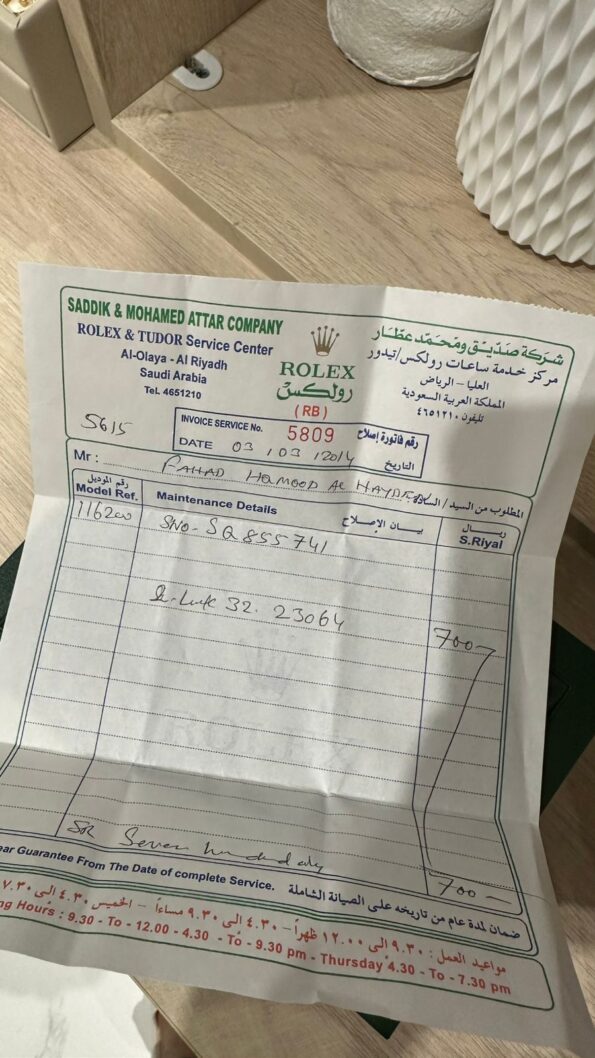 SADDIK & MOHAMED ATTAR COMPANY
ROLEX & TUDOR Service Center
Al-Olaya - Al Riyadh
Saudi Arabia
Tel. 4651210
ROLEX
رولكس
(RB)
شركة صديق ومحمد عطار
مركز خدمة ساعات رولكس/تيدور
العليا - الرياض
المملكة العربية السعودية
تليفون ٤٦٥١٢١٠
5615
INVOICE SERVICE No. 5809 رقم فاتورة إصلاح
DATE 03 / 03 / 2014 التاريخ
Mr : FAHAD HAMOOD AL المطلوب من السيد / السادة
رقم الموديل
Model Ref.
Maintenance Details بيان الإصلاح
ريال
S.Riyal
116200 SNO- SQ855741
32. 23064 700-
SR Seven hundred only 700-
ear Guarantee From The Date of complete Service. ضمان لمدة عام من تاريخه على الصيانة الشاملة
مواعيد العمل : ٩.٣٠ الى ١٢.٠٠ ظهراً - ٤.٣٠ الى ٩.٣٠ مساءاً - الخميس ٤.٣٠ الى ٧.٣٠
ng Hours : 9.30 - To - 12.00 - 4.30 - To - 9.30 pm - Thursday 4.30 - To - 7.30 pm